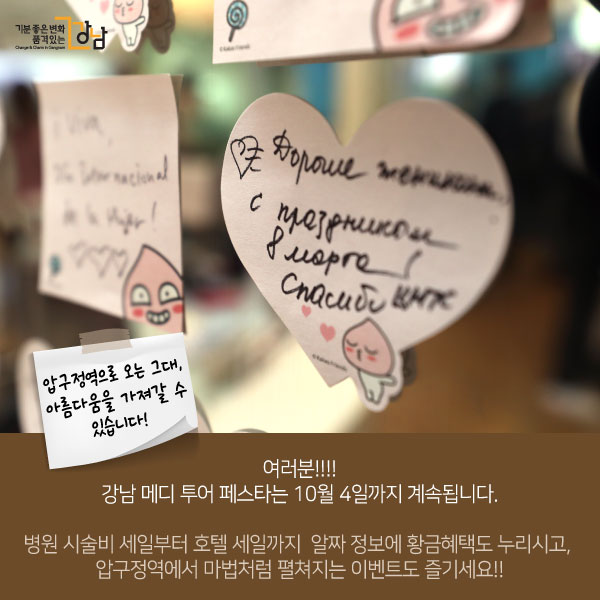 기분 좋은 변화
품격있는
강남
Change & Charm in Gangnam
© Kakao Friends
¡ Viva,
Día Internacional
de la Mujer!
Дорогие женщины,
с праздником
8 марта!
Спасибо
© Kakao Friends
압구정역으로 오는 그대,
아름다움을 가져갈 수
있습니다!
여러분!!!!
강남 메디 투어 페스타는 10월 4일까지 계속됩니다.
병원 시술비 세일부터 호텔 세일까지 알짜 정보에 황금혜택도 누리시고,
압구정역에서 마법처럼 펼쳐지는 이벤트도 즐기세요!!